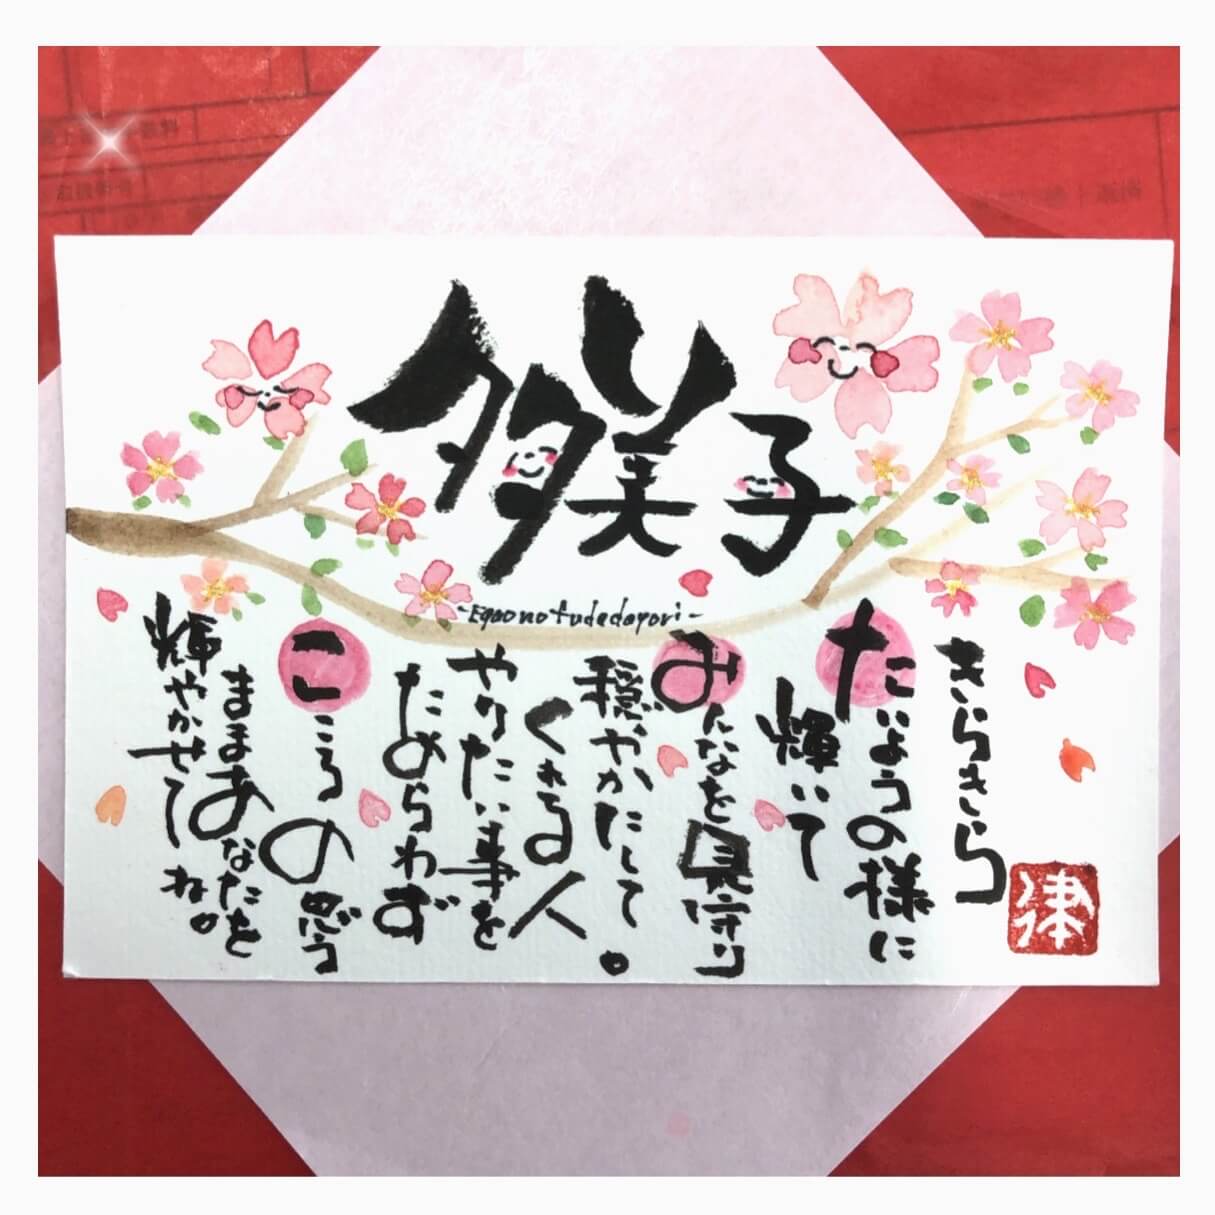 多美子
-Egao no fudedayori-
きらきら
たいようの様に
輝いて
みんなを見守り
穏やかにして。
くれる人
やりたい事を
ためらわず
こころの思う
ままあなたを
輝やかせてね。
律